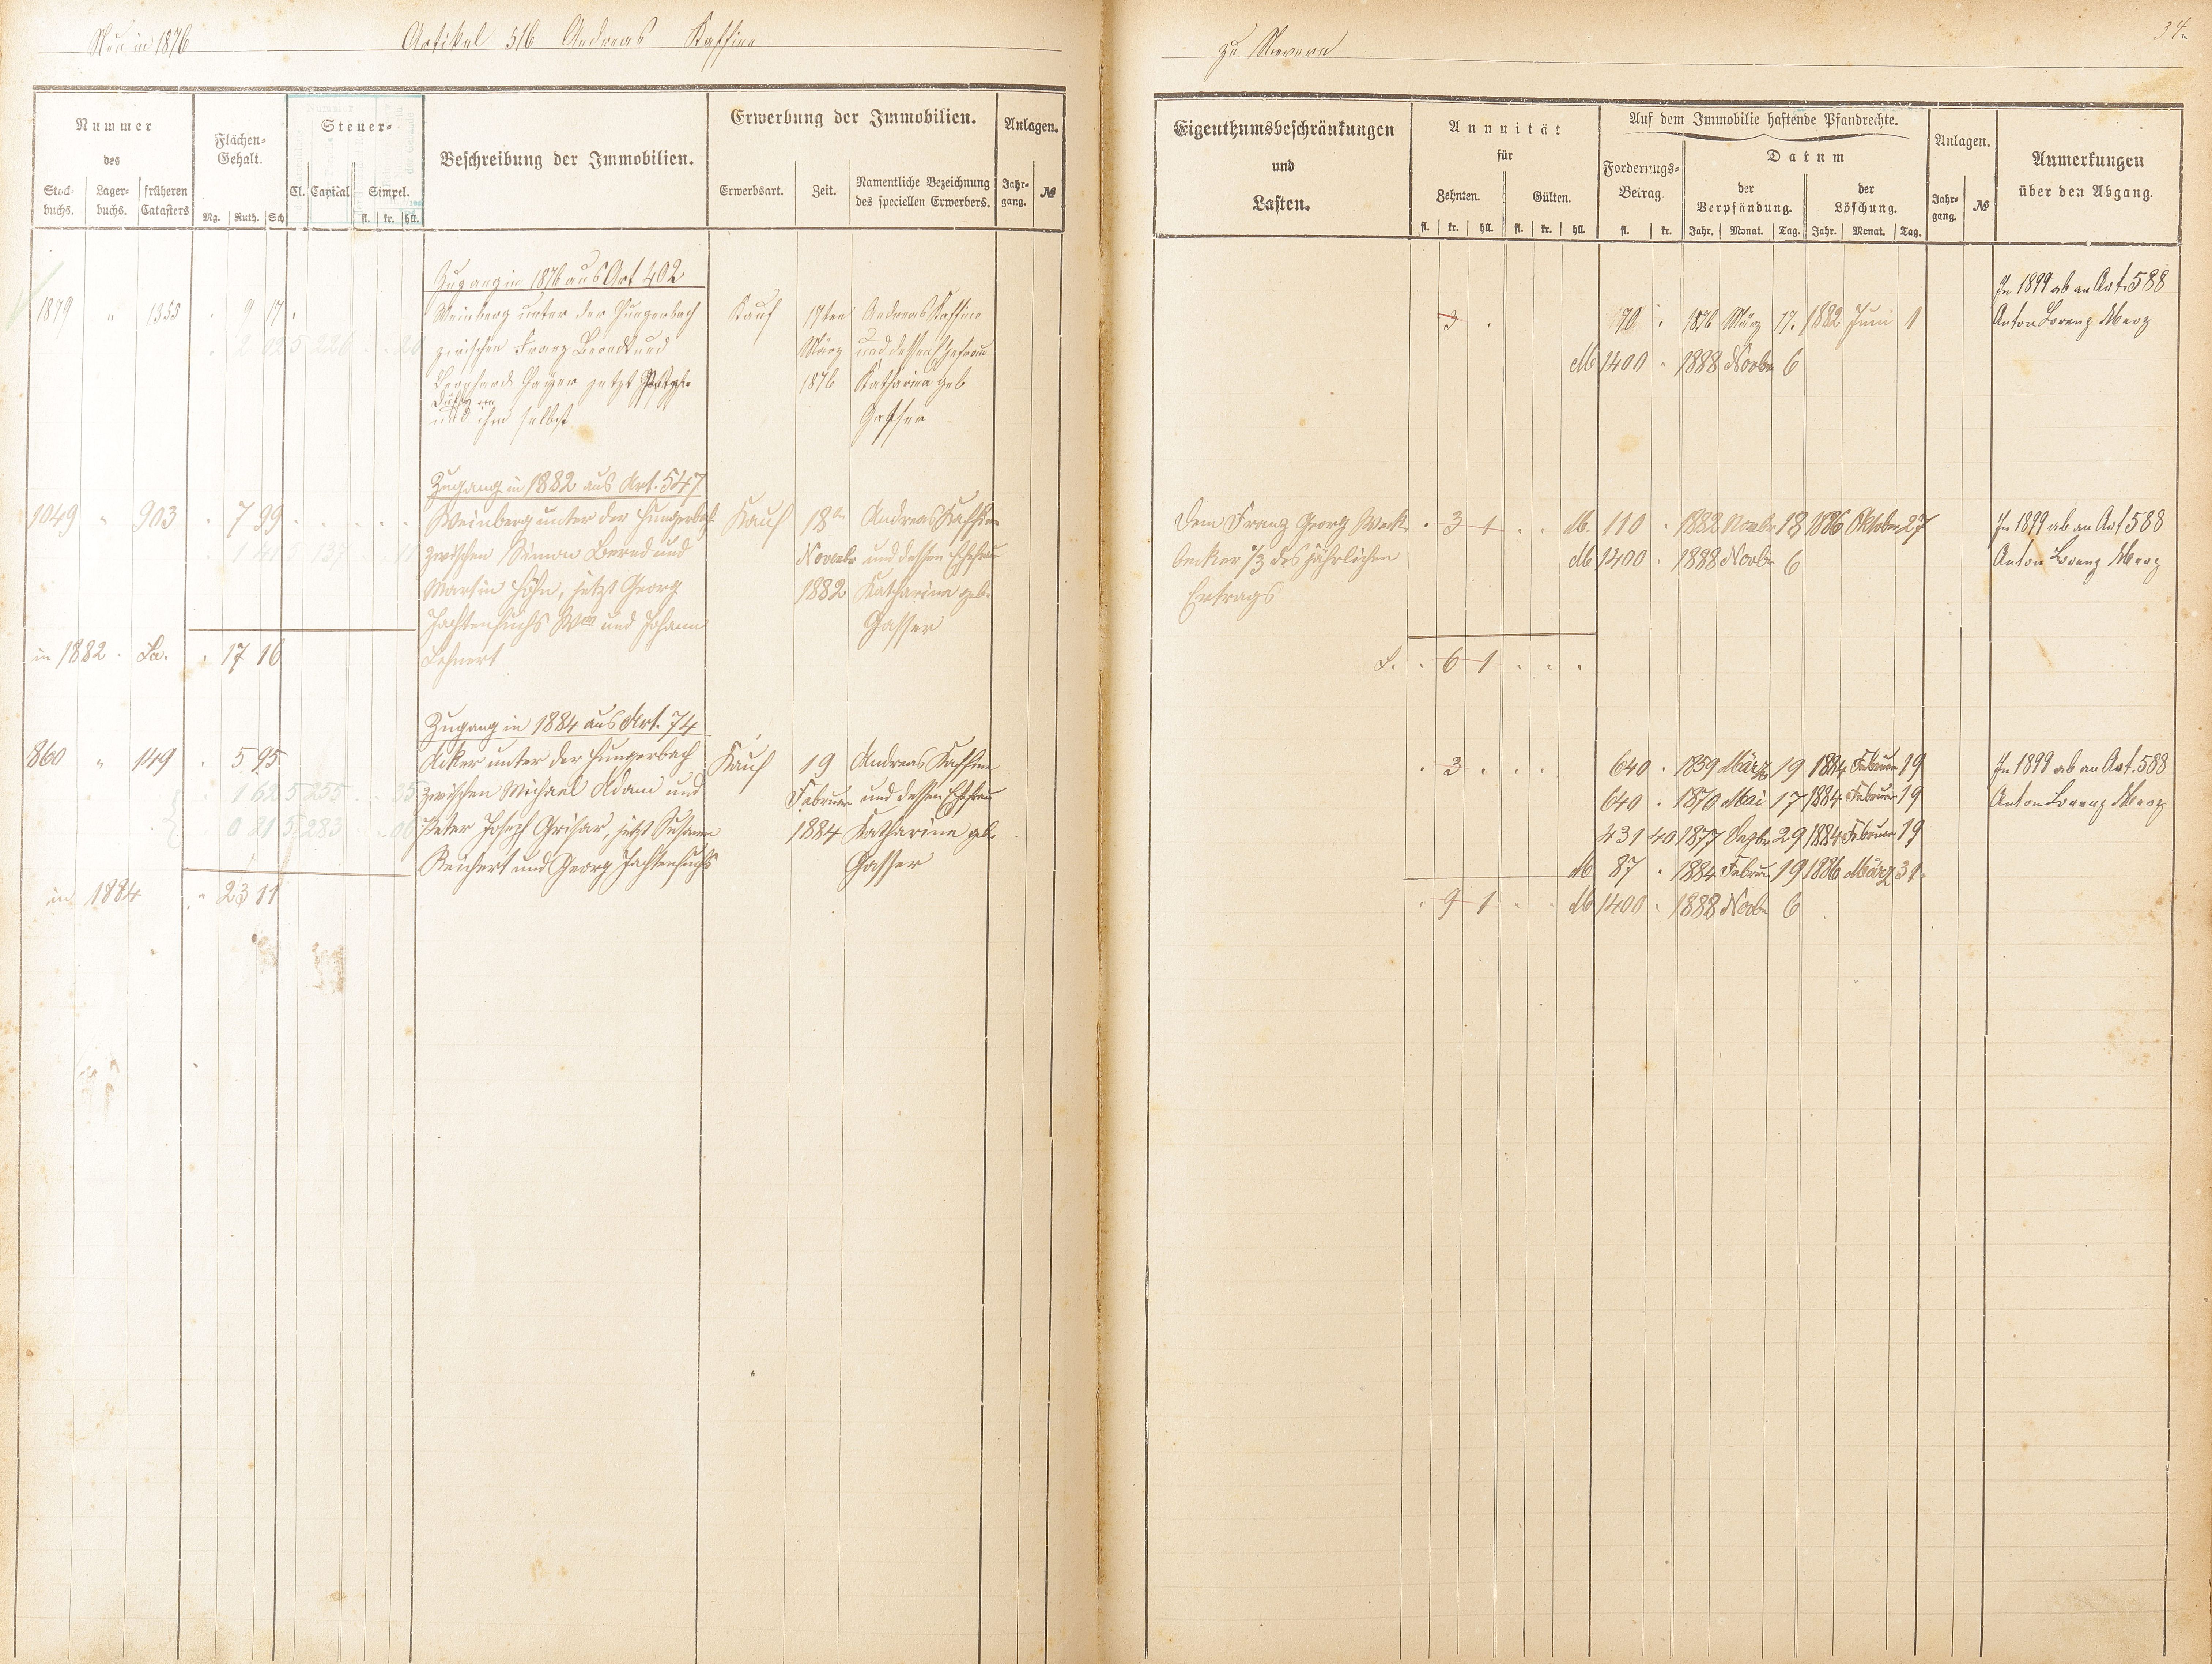 Neu in 1876 Artikel 516 Andreas Kaffine
zu Nievern 34.
Nummer
des
Stock-
buchs.
Lager-
buchs.
früheren
Catasters
Flächen-
Gehalt.
Mg. Ruth. Sch.
Steuer-
Cl. Capital Simpel.
fl. kr. hll.
Beschreibung der Immobilien.
Erwerbung der Immobilien.
Erwerbsart. Zeit.
Namentliche Bezeichnung
des speciellen Erwerbers.
Anlagen.
Jahr-
gang.
№
Eigenthumsbeschränkungen
und
Lasten.
Annuität
für
Zehnten. Gülten.
fl. kr. hll. fl. kr. hll.
Auf dem Immobilie haftende Pfandrechte.
Forderungs-
Betrag.
fl. kr.
Datum
der
Verpfändung.
der
Löschung.
Jahr. Monat. Tag. Jahr. Monat. Tag.
Anlagen.
Jahr-
gang.
№
Anmerkungen
über den Abgang.
Zugang in 1876 aus Art 402
1879 " 1353 . 9 17 . Weinberg unter der Hungerbach Kauf 17ten Andreas Kaffine
zwischen Franz Berndt und März und dessen Ehefrau
Bernhard Hayer jetzt 1876 Katharina geb
und ihm selbst. Gasser
3 . 70 . 1876 März 17. 1882 Juni 1
M 1400 " 1888 Novbr 6
In 1899 ab an Art. 588
Anton Lorenz Merz
Zugang in 1882 aus Art. 547
1049 " 903 . 7 99 . Weinberg unter der Hungerbach Kauf 18ten Andreas Kaffine
zwischen Simon Bernd und Novembr und dessen Ehefrau
Martin Höhn, jetzt Georg 1882 Katharina geb.
Fachtenfuchs Wwe und Johann Gasser
Lehnert
in 1882 . Sa. . 17 16
Dem Franz Georg Weck- . 3 1 . . M. 110 . 1882 Novbr 18 1886 Oktober 27
becker 1/3 des jährlichen M 1400 . 1888 Novbr 6
Ertrags
S. . 6 1 . . .
In 1899 ab an Art 588
Anton Lorenz Merz
Zugang in 1884 aus Art. 74
860 " 1149 . 5 95 Acker unter der Hungerbach Kauf 19 Andreas Kaffine
1 62 5 255 35 zwischen Michael Adami und Februar und dessen Ehefrau
0 81 5 283 Peter Joseph Grisar, jetzt Susanna 1884 Katharina geb
Reichert und Georg Fachtenfuchs Gasser
in 1884 " 23 11
. 3 . . . 640 . 1859 März 19 1884 Februar 19
640 . 1870 Mai 17 1884 Februar 19
431 40 1877 Dezbr 29 1884 Februar 19
M 87 . 1884 Februar 19 1886 März 31
. 9 1 . . M 1400 . 1888 Novbr 6
In 1899 ab an Art. 588
Anton Lorenz Merz